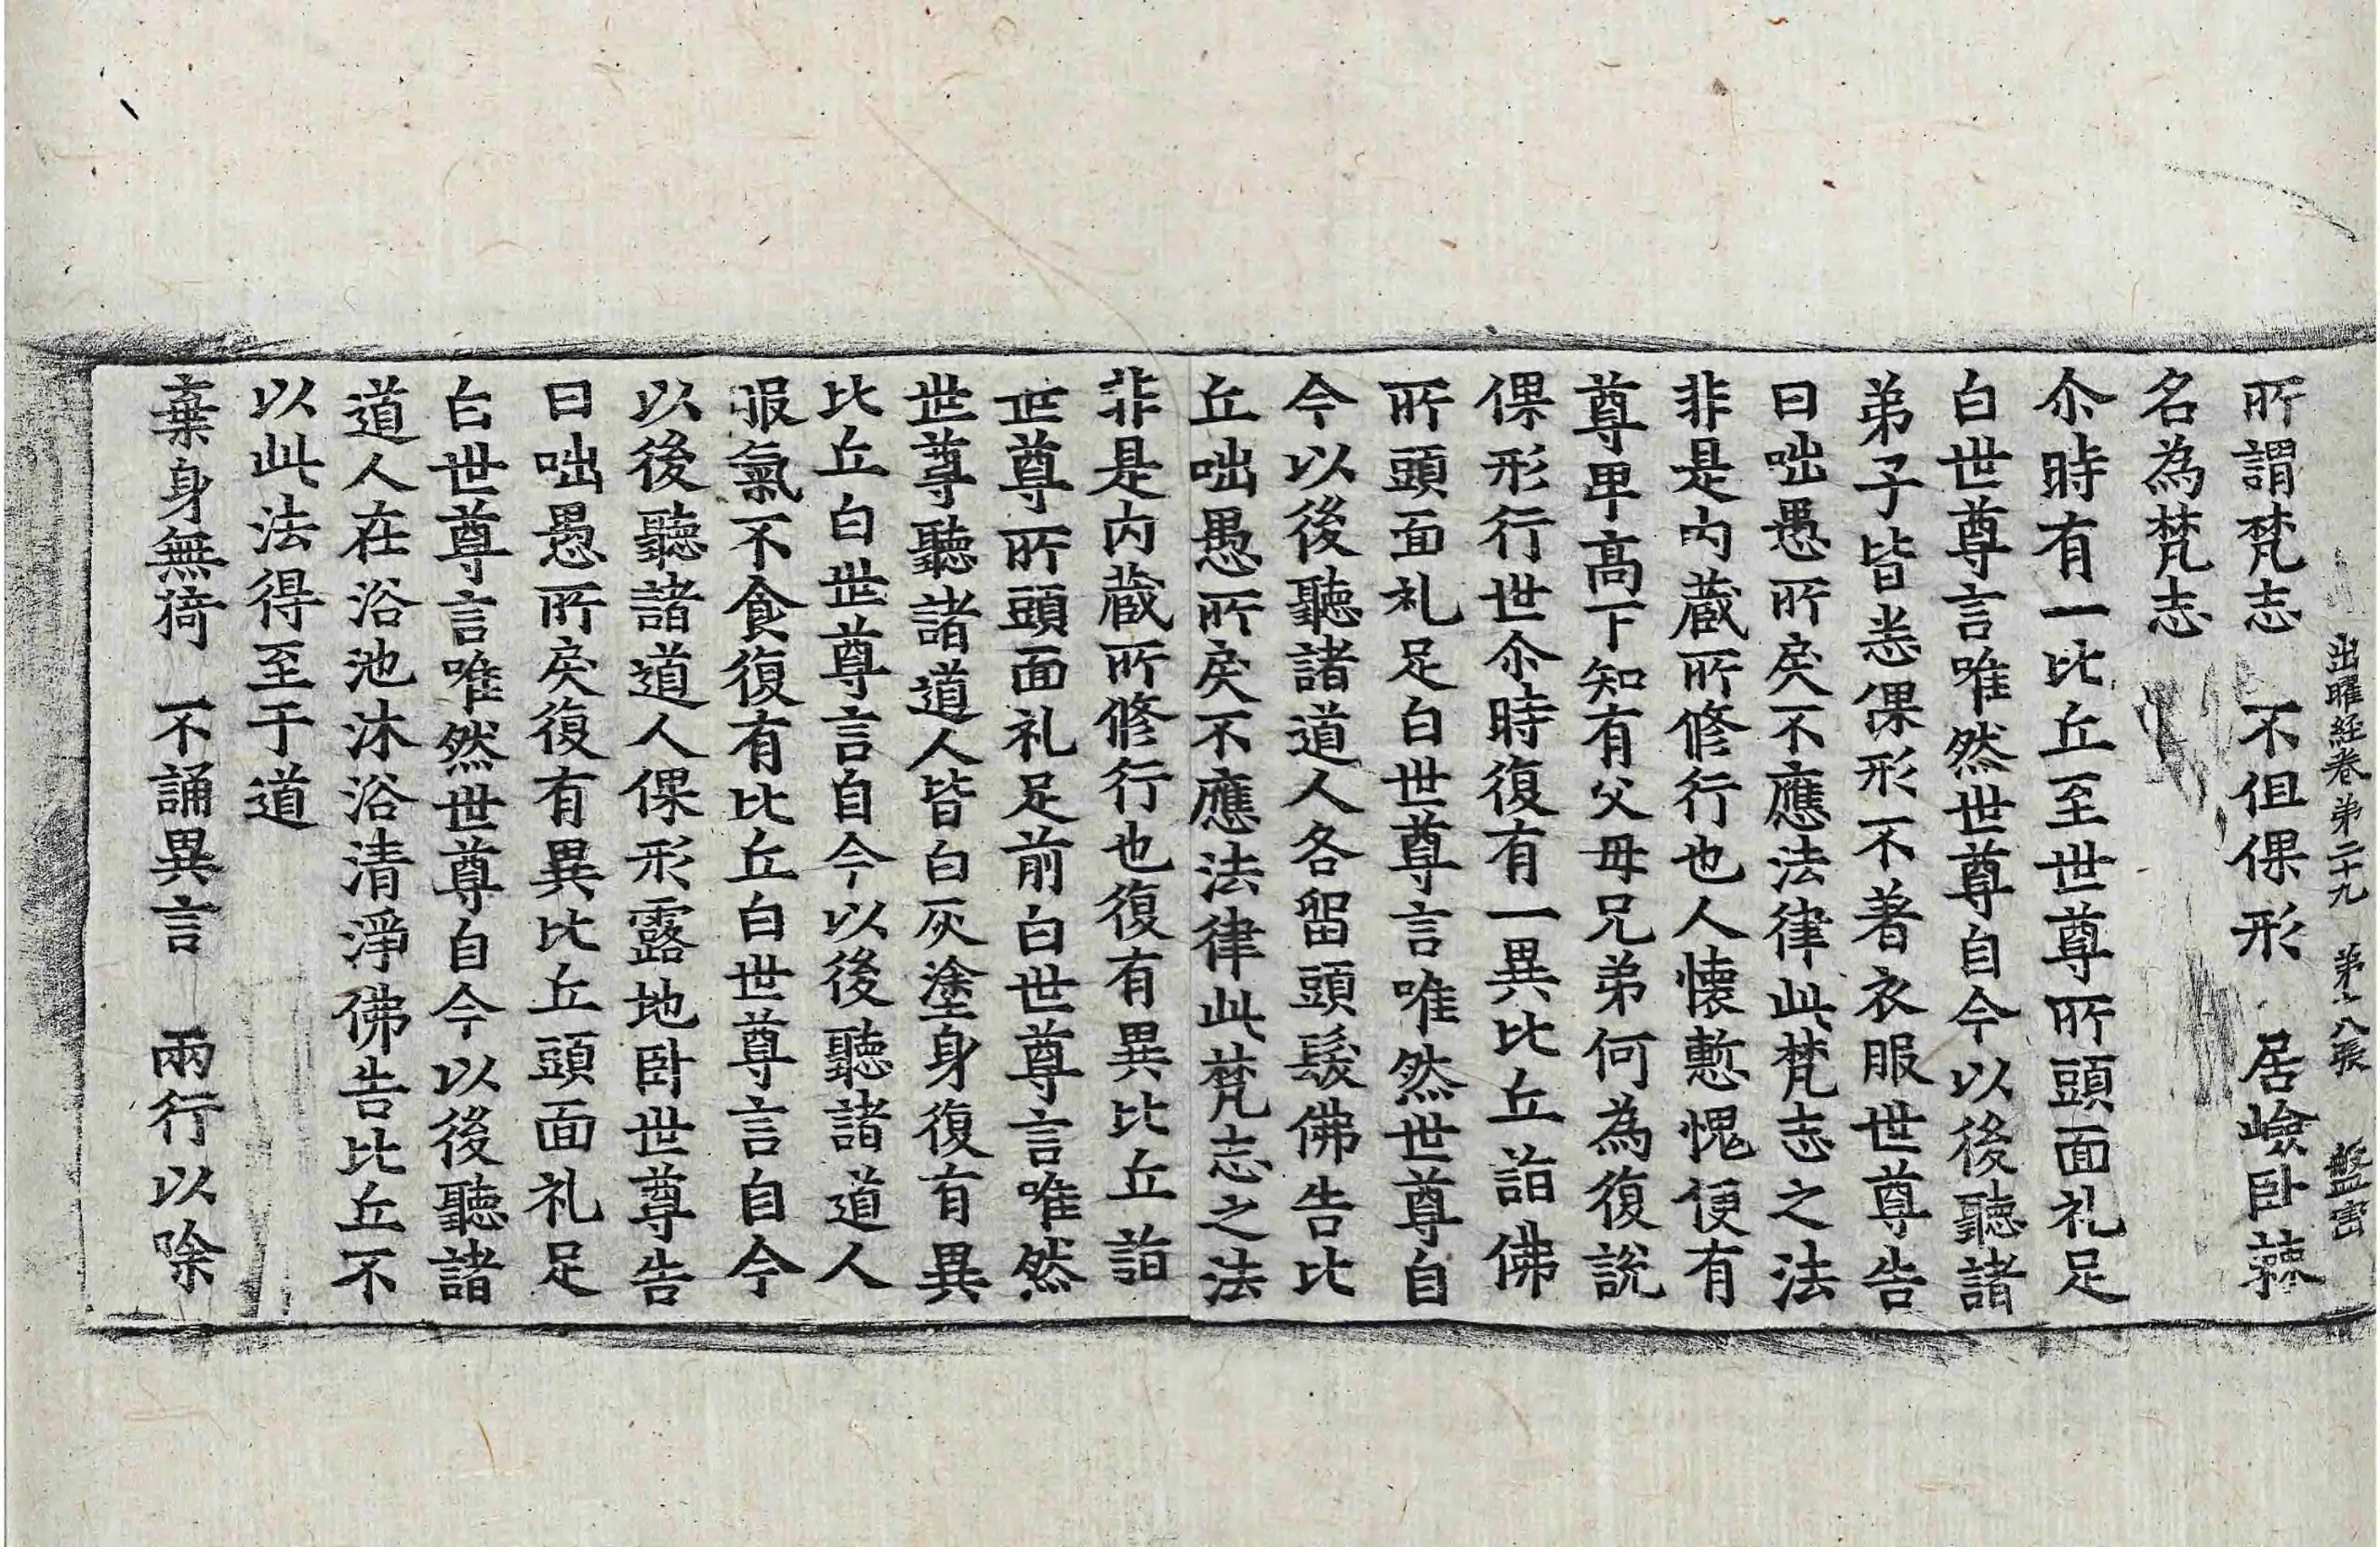 出曜經卷第二十九 第八張 盤
所謂梵志 不但倮形 居嶮卧蕀
名為梵志
尒時有一比丘至世尊所頭面礼足
白世尊言唯然世尊自今以後聽諸
弟子皆悉倮形不著衣服世尊告
曰咄愚所戾不應法律此梵志之法
非是內蔵所修行也人懷慙愧便有
尊卑高下知有父母兄弟何為復說
倮形行世尒時復有一異比丘詣佛
所頭面礼足白世尊言唯然世尊自
今以後聽諸道人各留頭髮佛告比
丘咄愚所戾不應法律此梵志之法
非是內蔵所修行也復有異比丘詣
世尊所頭面礼足前白世尊言唯然
世尊聽諸道人皆白灰塗身復有異
比丘白世尊言自今以後聽諸道人
服氣不食復有比丘白世尊言自今
以後聽諸道人倮形露地卧世尊告
曰咄愚所戾復有異比丘頭面礼足
白世尊言唯然世尊自今以後聽諸
道人在浴池沐浴清淨佛告比丘不
以此法得至于道
棄身無猗 不誦異言 兩行以除